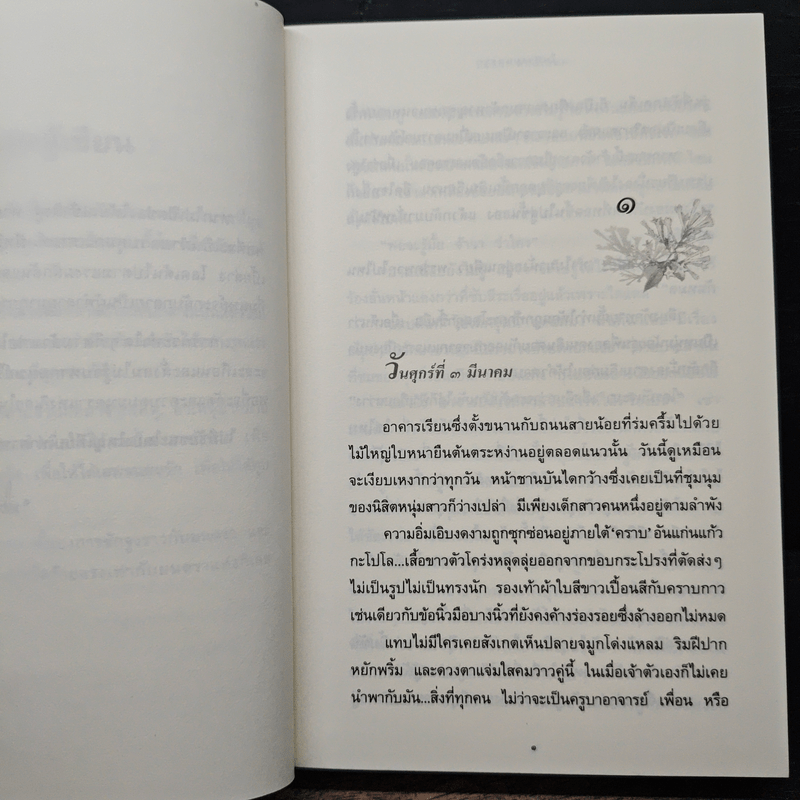 ๑
วันศุกร์ที่ ๓ มีนาคม
อาคารเรียนซึ่งตั้งขนานกับถนนสายน้อยที่ร่มครึ้มไปด้วย
ไม้ใหญ่ใบหนายืนต้นตระหง่านอยู่ตลอดแนวนั้น วันนี้ดูเหมือน
จะเงียบเหงากว่าทุกวัน หน้าชานบันไดกว้างซึ่งเคยเป็นที่ชุมนุม
ของนิสิตหนุ่มสาวก็ว่างเปล่า มีเพียงเด็กสาวคนหนึ่งอยู่ตามลำพัง
ความอิ่มเอิบงดงามถูกซุกซ่อนอยู่ภายใต้ ‘คราบ’ อันแก่นแก้ว
กะโปโล...เสื้อขาวตัวโคร่งหลุดลุ่ยออกจากขอบกระโปรงที่ตัดส่งๆ
ไม่เป็นรูปไม่เป็นทรงนัก รองเท้าผ้าใบสีขาวเปื้อนสีกับคราบกาว
เช่นเดียวกับข้อนิ้วมือบางนิ้วที่ยังคงค้างร่องรอยซึ่งล้างออกไม่หมด
แทบไม่มีใครเคยสังเกตเห็นปลายจมูกโด่งแหลม ริมฝีปาก
หยักพริ้ม และดวงตาแจ่มใสคมวาวคู่นี้ ในเมื่อเจ้าตัวเองก็ไม่เคย
นำพากับมัน...สิ่งที่ทุกคน ไม่ว่าจะเป็นครูบาอาจารย์ เพื่อน หรือ
๑